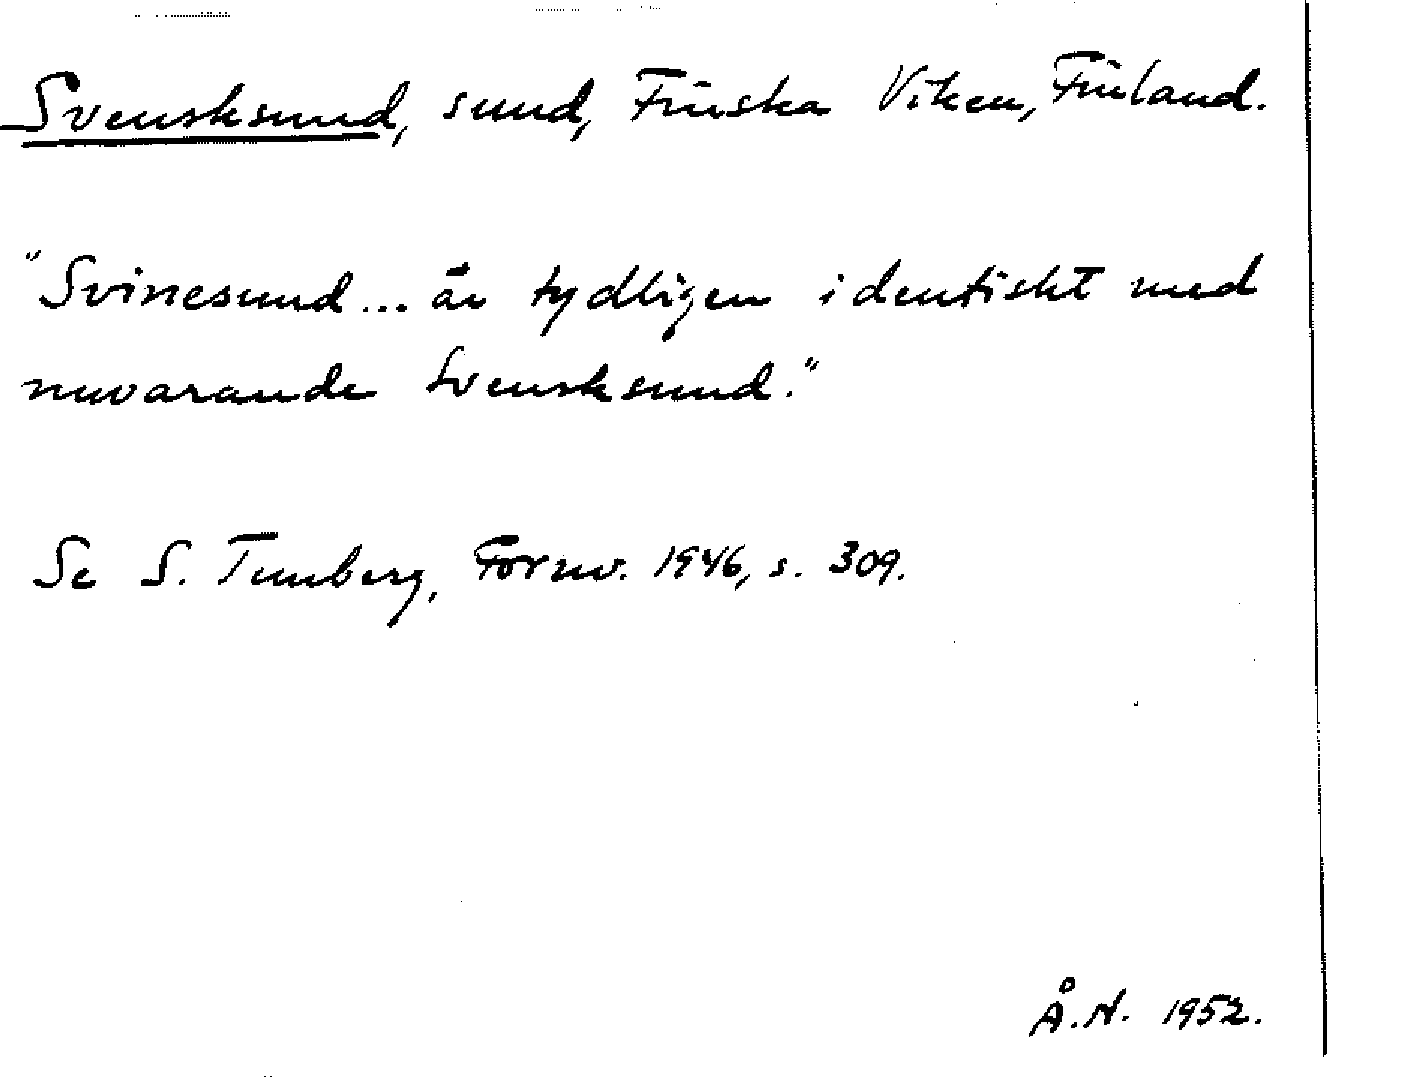 Svensksund, sund, Finska Viken, Finland.
"Svinesund... är tydligen identiskt med
nuvarande Svensksund."
Se S. Tunberg, Fornv. 1946, s. 309.
Å.N. 1952.